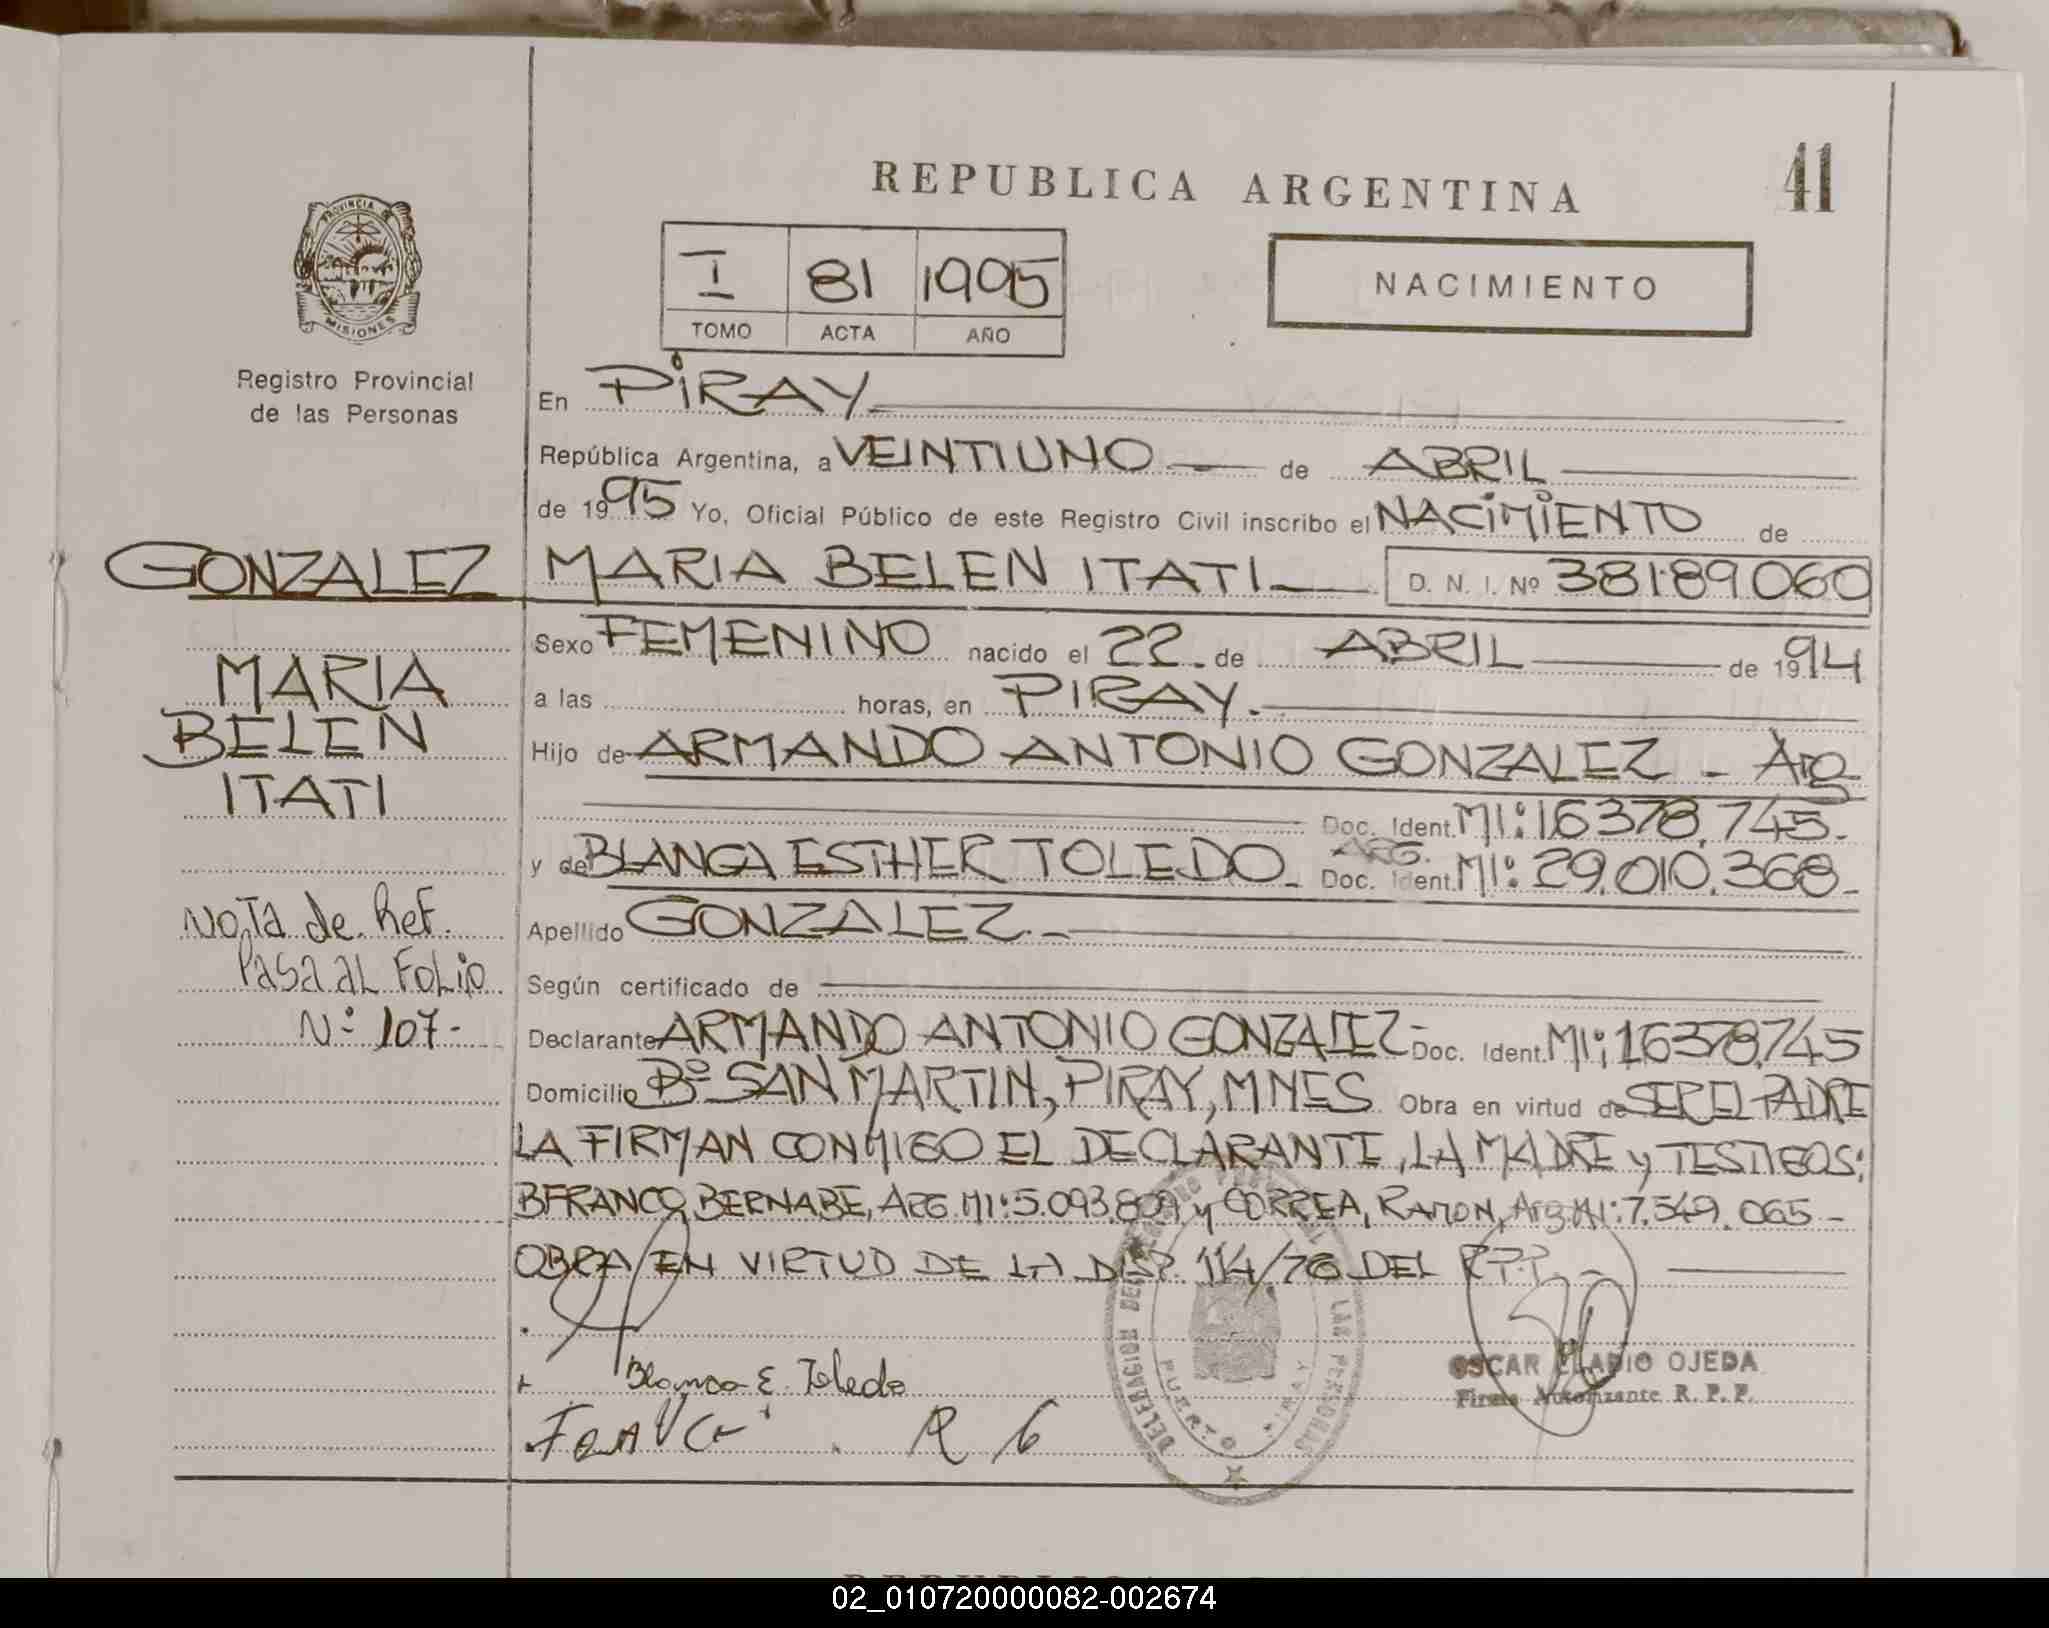 REPUBLICA ARGENTINA
41
PROVINCIA DE
MISIONES
Registro Provincial
de las Personas
I 81 1995
TOMO ACTA AÑO
NACIMIENTO
En PIRAY
República Argentina, a VEINTIUNO de ABRIL
de 1995 Yo, Oficial Público de este Registro Civil inscribo el NACIMIENTO de
GONZALEZ MARIA BELEN ITATI D. N. I. Nº 38189060
Sexo FEMENINO nacido el 22 de ABRIL de 1994
a las horas, en PIRAY.
Hijo de ARMANDO ANTONIO GONZALEZ - Arg
Doc. Ident. MI: 16378.745-
y de BLANCA ESTHER TOLEDO - ARG. Doc. Ident. MI: 29.010.368-
Apellido GONZALEZ.-
Según certificado de
Declarante ARMANDO ANTONIO GONZALEZ - Doc. Ident. MI: 16378,745
Domicilio Bº SAN MARTIN, PIRAY, MNES Obra en virtud de SER EL PADRE
LA FIRMAN CONMIGO EL DECLARANTE, LA MADRE y TESTIGOS:
BFRANCO, BERNABE, ARG. MI: 5.093.809 y CORREA, RAMON, Arg MI: 7.549.065-
OBRA EN VIRTUD DE LA DISP. 114/76 DEL R.P.P.-
MARIA
BELEN
ITATI
Nota de Ref.
Pasa al Folio
Nº 107-
Blanca E. Toledo
R
DELEGACION DEL REGISTRO PROVINCIAL DE LAS PERSONAS
PUERTO PIRAY
OSCAR ELADIO OJEDA
Firma Autorizante R. P. P.
02_010720000082-002674